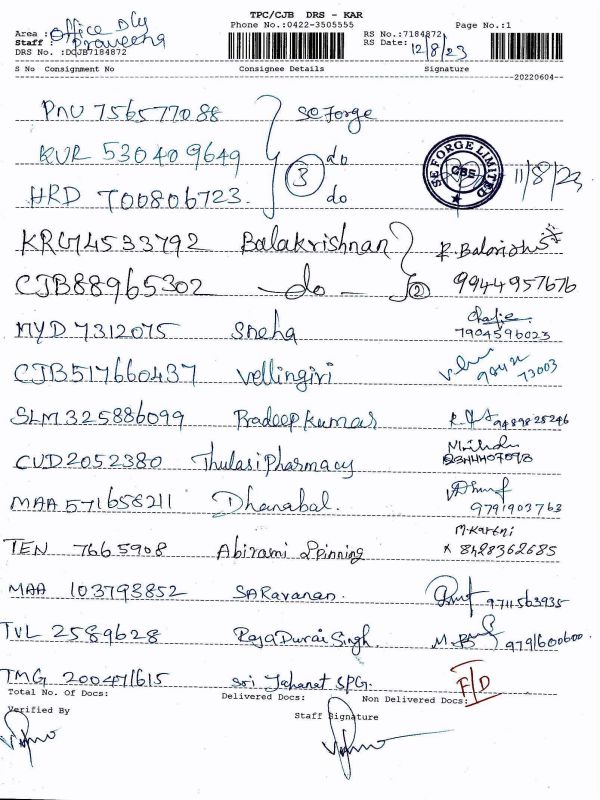 TPC/CJB DRS - KAR
Phone No.:0422-3505555 Page No.:1
Area : Office Dly
Staff : Praveena
DRS No. :DCJB7184872
RS No.:7184872
RS Date: 12/8/23
S No Consignment No Consignee Details Signature
20220604
PNU 756577088 SE Forge
KUR 530409649 do
HRD T00806723. 3 do
SE FORGE LIMITED CBE 11/8/23
KRG74533792 Balakrishnan
CJB88965302 do 2 9944957676
MYD 7312075 Sneha 7904596023
CJB517660437 Vellingiri 73003
SLM325886099 Pradeep kumar 9489825246
CUD2052380 Thulasi Pharmacy
MAA 571658211 Dhanabal. 9791903763
TEN 7665908 Abirami Spinning 8428362685
MAA 103793852 SARavanan. 9711563935
TVL 2589628 Raja Durai Singh. 9791600600.
TMG 200471615 Sri SPG. F/D
Total No. of Docs: Delivered Docs: Non Delivered Docs:
Verified By Staff Signature